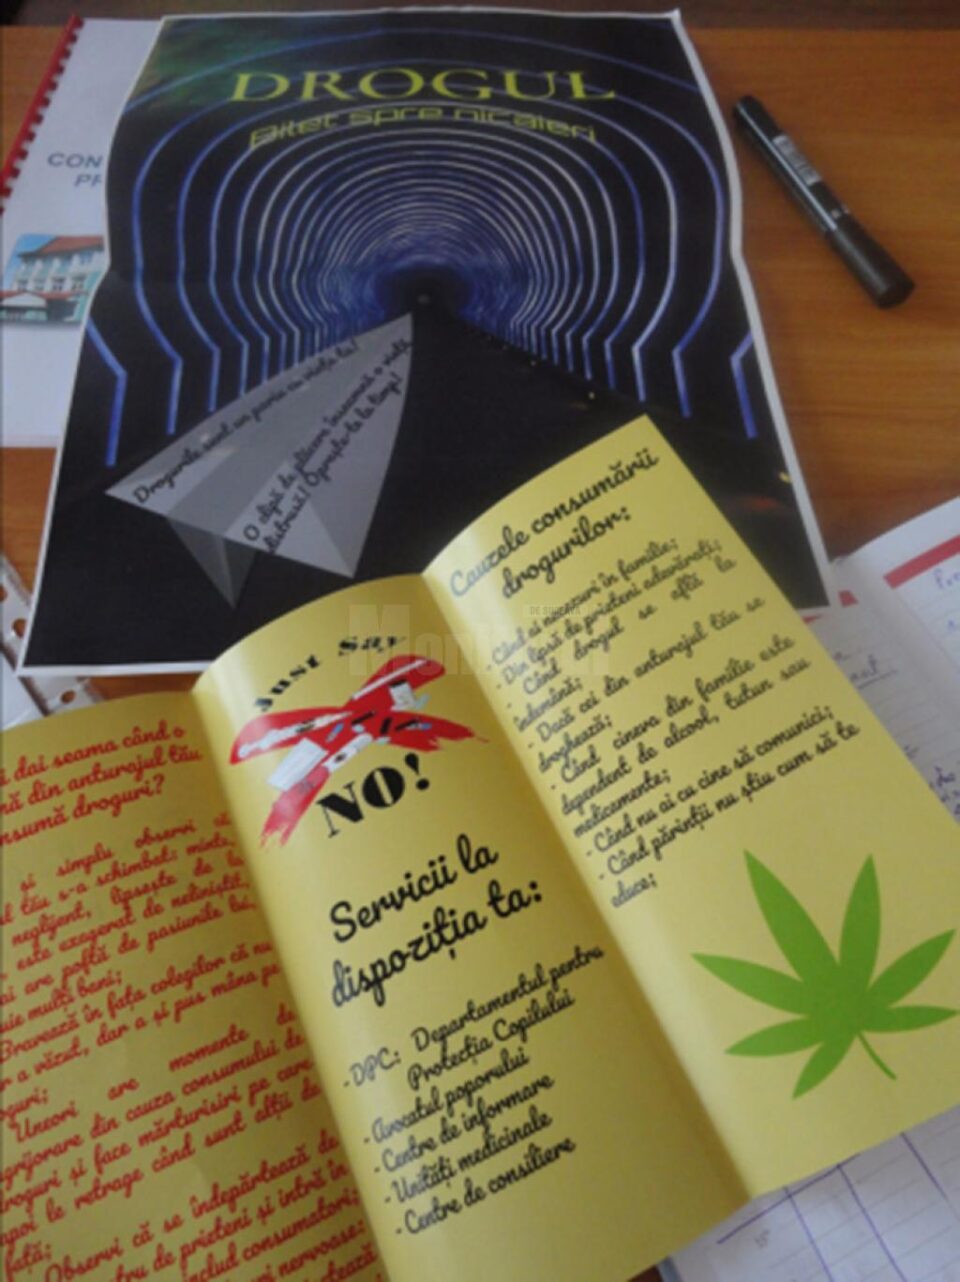 DROGUL
Bilet spre nicaieri
CON
PR
Drogurile sunt un pariu cu viața ta!
O clipă de plăcere înseamnă o viață
distrusă! Oprește-te la timp!
Just Say
NO!
Servicii la
dispoziția ta:
- DPC: Departamentul pentru
Protecția Copilului
- Avocatul poporului
- Centre de informare
- Unități medicinale
- Centre de consiliere
Cauzele consumării
drogurilor:
- Când ai necazuri în familie;
- Din lipsă de prieteni adevărați;
- Când drogul se află la
îndemână;
- Dacă cei din anturajul tău se
droghează;
- Când cineva din familie este
dependent de alcool, tutun sau
medicamente;
- Când nu ai cu cine să comunici;
- Când părinții nu știu cum să te
educe;
i dai seama când o
nă din anturajul tău
nsumă droguri?
și simplu observi că
l tău s-a schimbat: minte,
neglijent, lipsește de la
este exagerat de neliniștit,
ai are poftă de pasiunile lui,
uie mulți bani;
Bravează în fața colegilor că nu
r a văzut, dar a și pus mâna pe
oguri;
Uneori are momente de
grijorare din cauza consumului de
droguri și face mărturisiri pe care
apoi le retrage când sunt alții de
față;
Observi că se îndepărtează de
tru de prieteni și intră în
includ consumatori;
ri nervoase;
MONITORUL
DE SUCEAVA